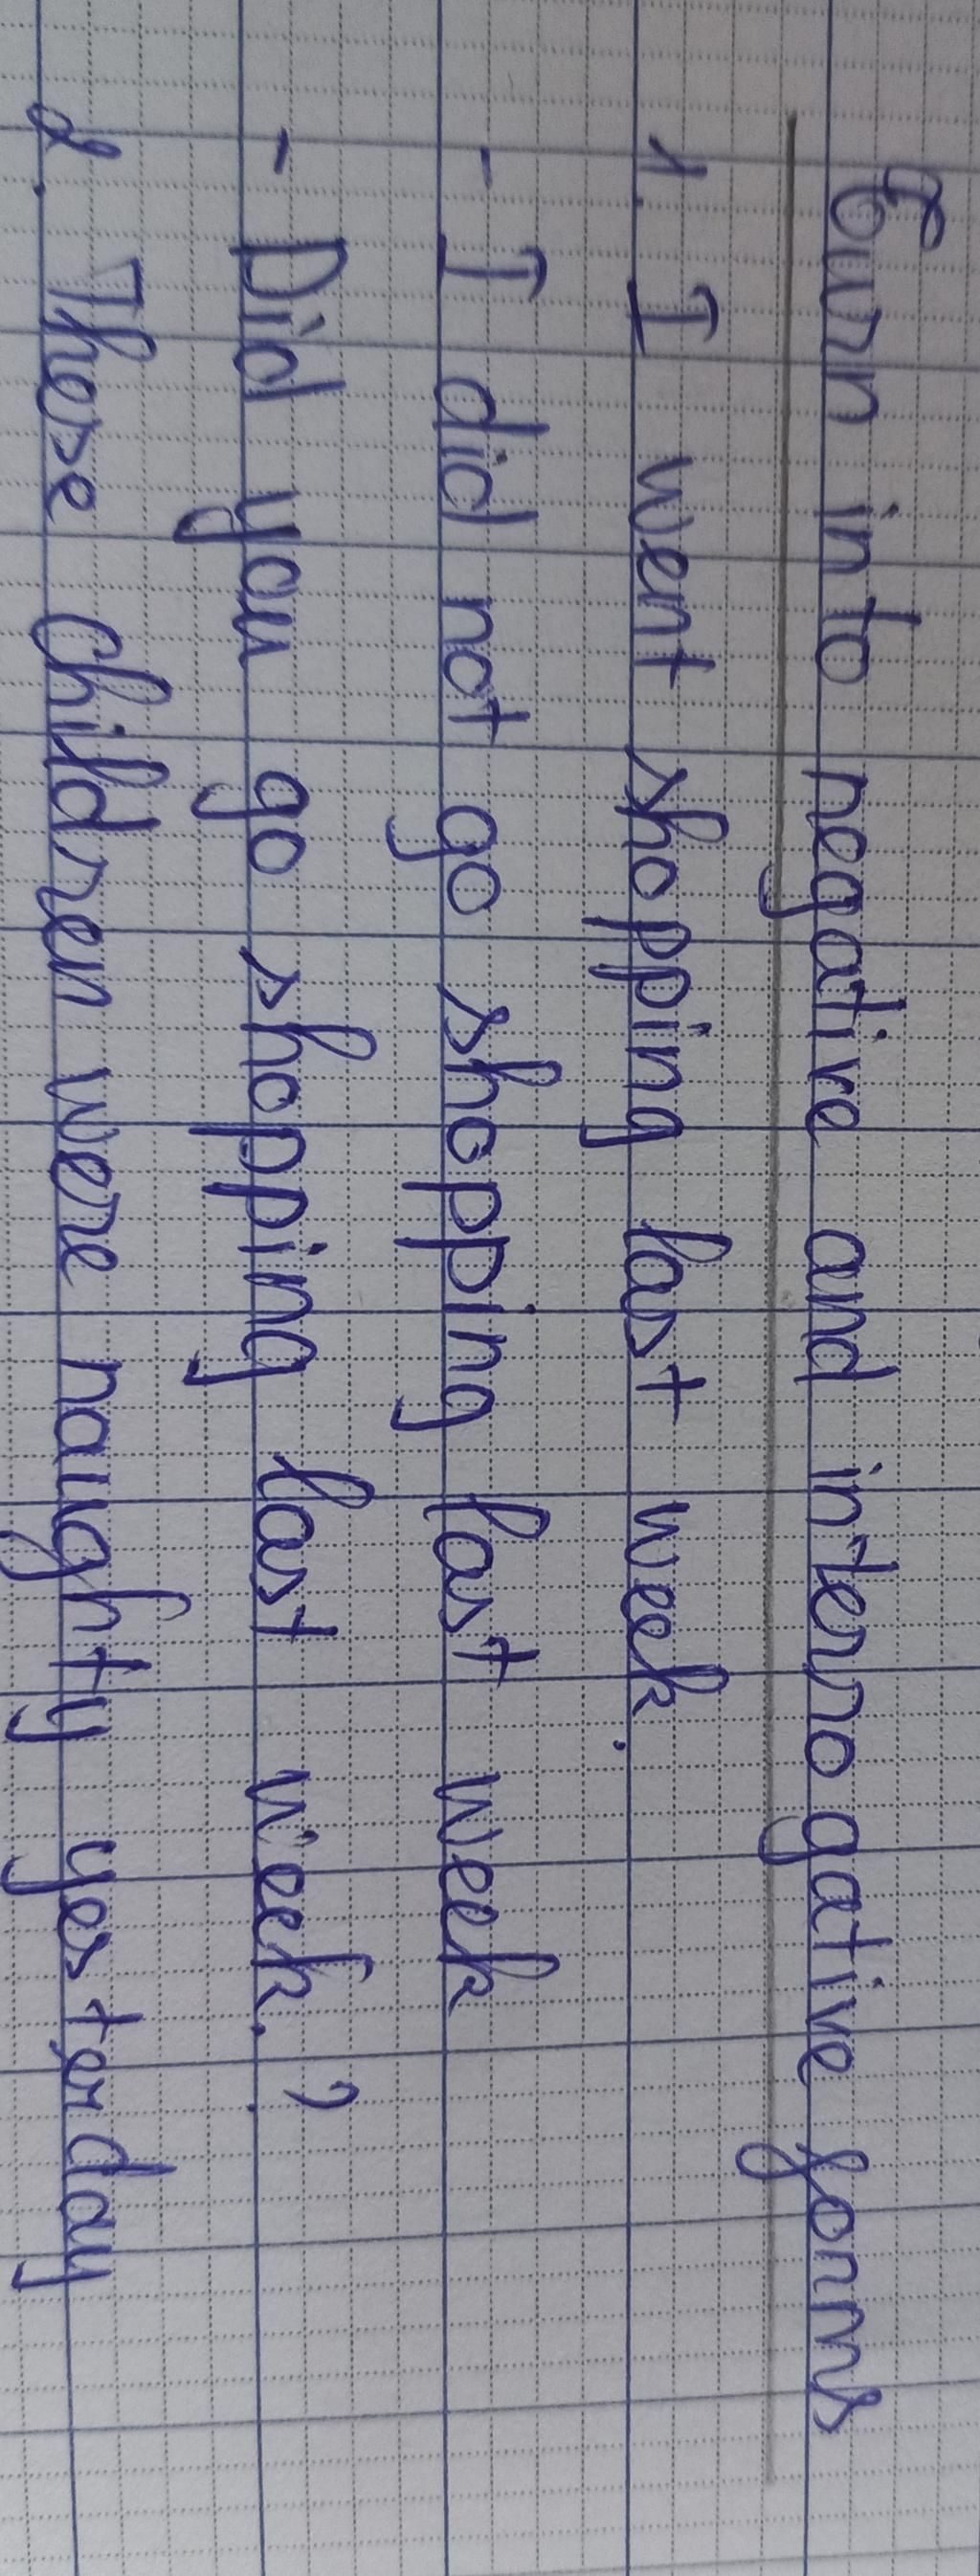 Turn into negative and interrogative forms
1. I went shopping last week.
- I did not go shopping last week
- Did you go shopping last week. ?
2. These children were naughty yesterday